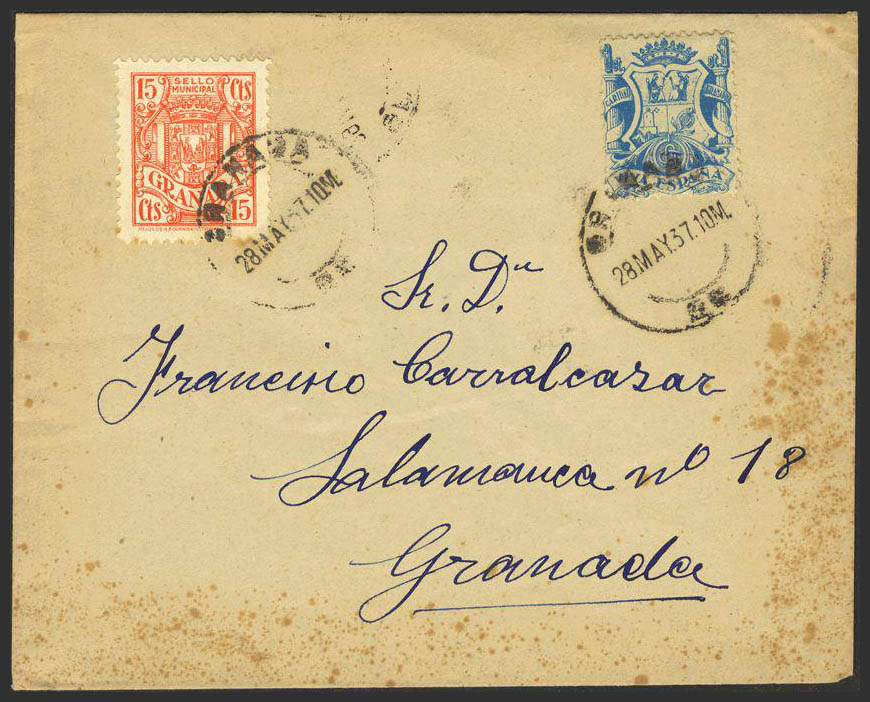 15 Cts
SELLO
MUNICIPAL
Cts 15
GRANADA
28.MAY.37.10M.
5 ct. ct.
ESPAÑA
GRANADA
28.MAY.37.10M.
Sr. Dn
Francisco Carralcazar
Salamanca nº 18
Granada